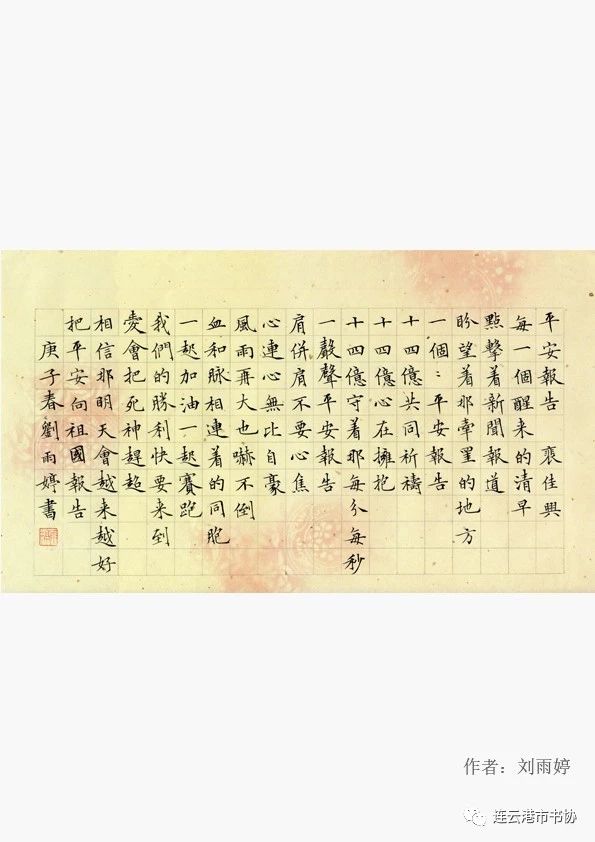 平安報告 佳興
每一個醒来的清早
點擊着新聞報道
盼望着那牽罣的地方
一個：平安報告
十四億共同祈禱
十四億心在擁抱
十四億守着那每分每秒
一聲聲平安報告
肩併肩不要心焦
心連心無比自豪
風雨再大也嚇不倒
血和脈相連着的同胞
一起加油一起賽跑
我們的勝利快要来到
愛會把死神趕超
相信那明天會越来越好
把平安向祖國報告
庚子春劉雨婷書
作者：刘雨婷
连云港市书协